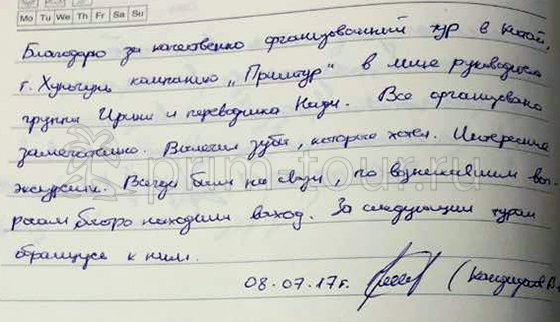 Mo Tu We Th Fr Sa Su
Благодарю за качественно организованный тур в Китай
г. Хуньчунь компанию „Примтур“ в лице руководителя
группы Ирины и переводчика Нади. Все организовано
замечательно. Вылечил зубы, которые хотел. Интересные
экскурсии. Всегда были на связи, по возникшим воп-
росам быстро находили выход. За следующим туром
обращусь к ним.
08.07.17г. (Кандидатов
prim-tour.ru